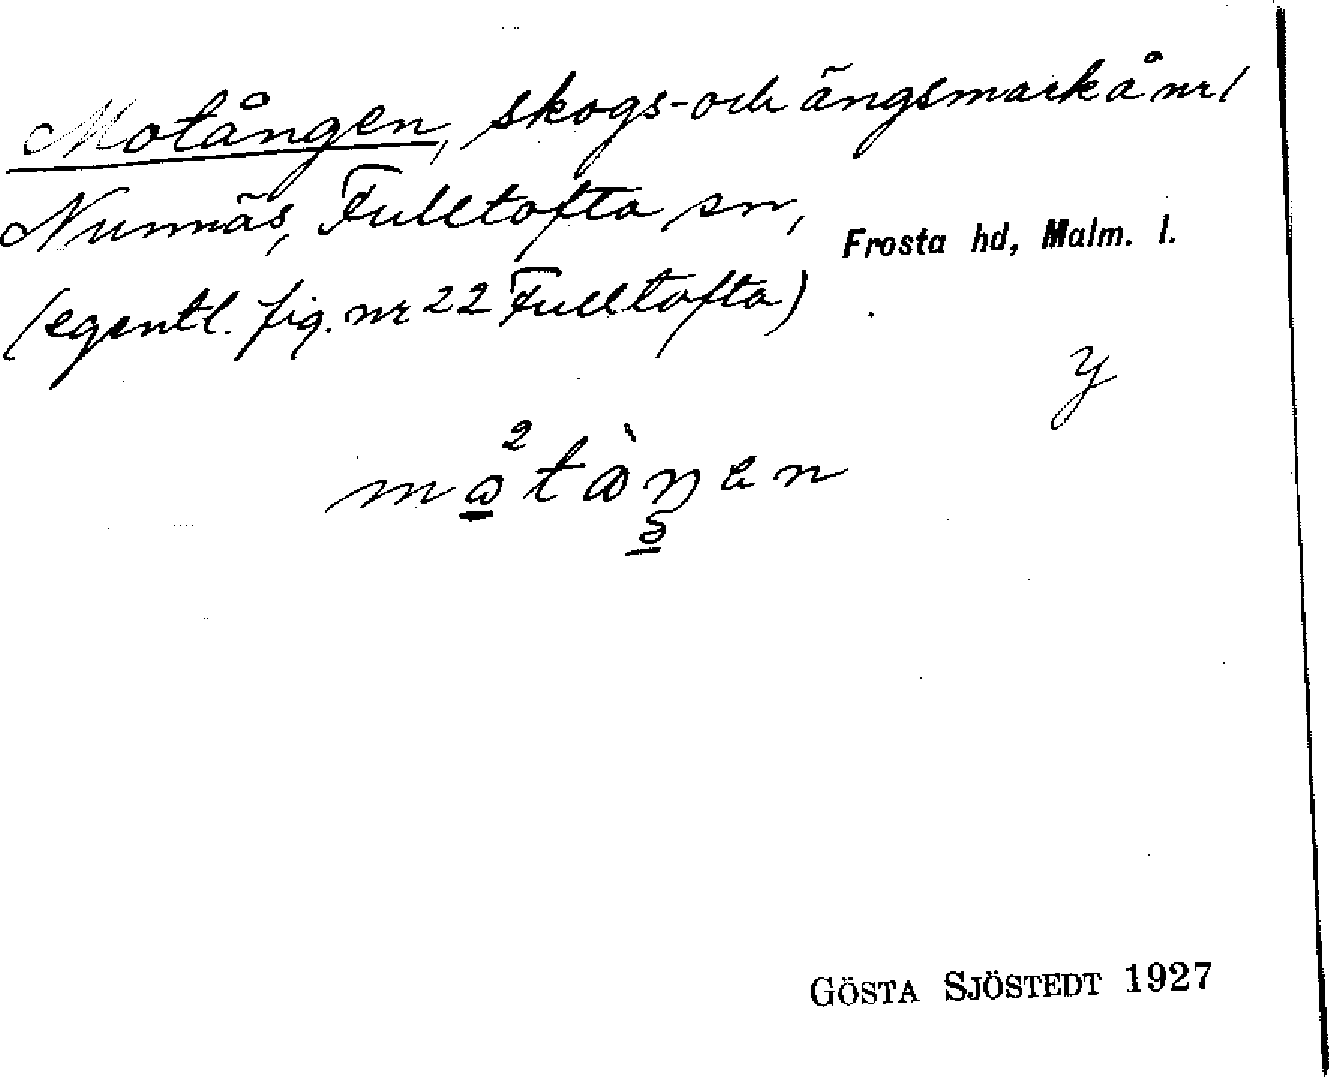 Motången, skogs- och ängsmark å nr 1
Nunnäs, Fulltofta sn, Frosta hd, Malm. l.
(egentl. fig. nr 22 Fulltofta)
y
GÖSTA SJÖSTEDT 1927